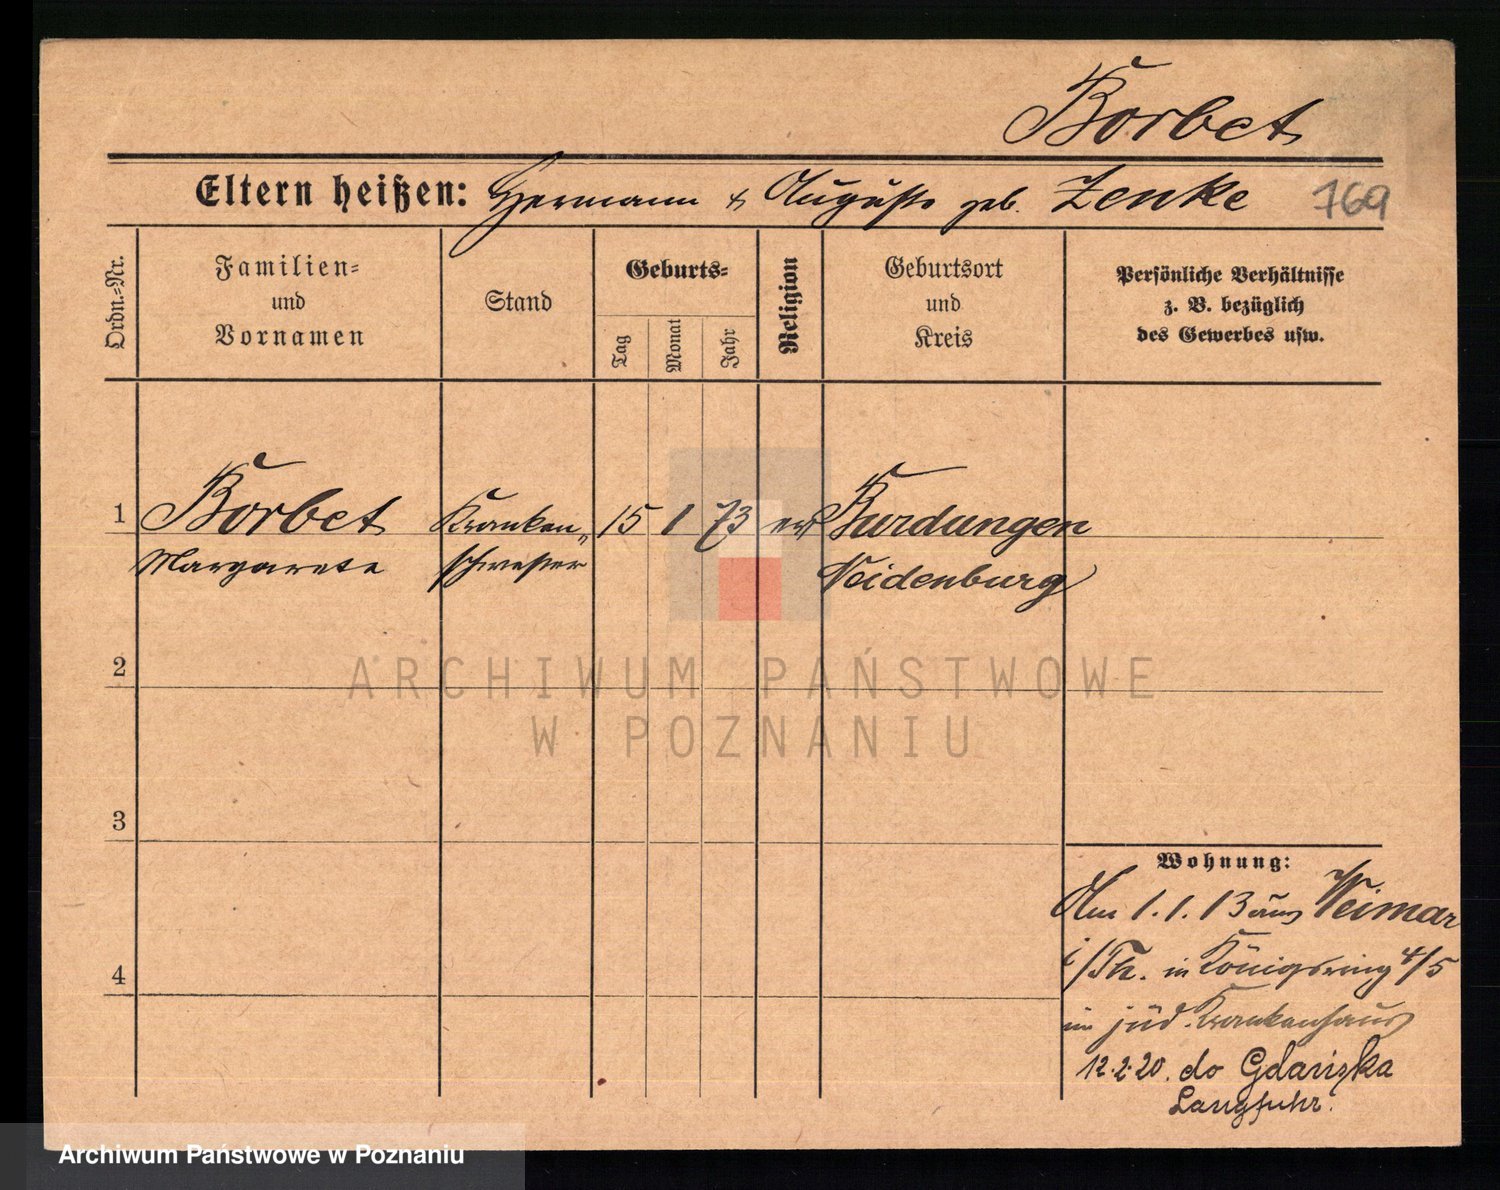 Borbet
Eltern heißen: Hermann & Auguste geb. Zenke 769
Ordn.=Nr.
Familien=
und
Vornamen
Stand
Geburts=
Tag
Monat
Jahr
Religion
Geburtsort
und
Kreis
Persönliche Verhältnisse
z. B. bezüglich
des Gewerbes usw.
1 Borbet Kranken„ 15 1 73 ev Burdungen
Margarete schwester Neidenburg
2
ARCHIWUM PAŃSTWOWE
W POZNANIU
3
Wohnung:
Am 1.1.13 aus Weimar
i/Th. in Königsring 4/5
4
im jüd. Krankenhaus
12.2.20. do Gdańska
Langfuhr.
Archiwum Państwowe w Poznaniu